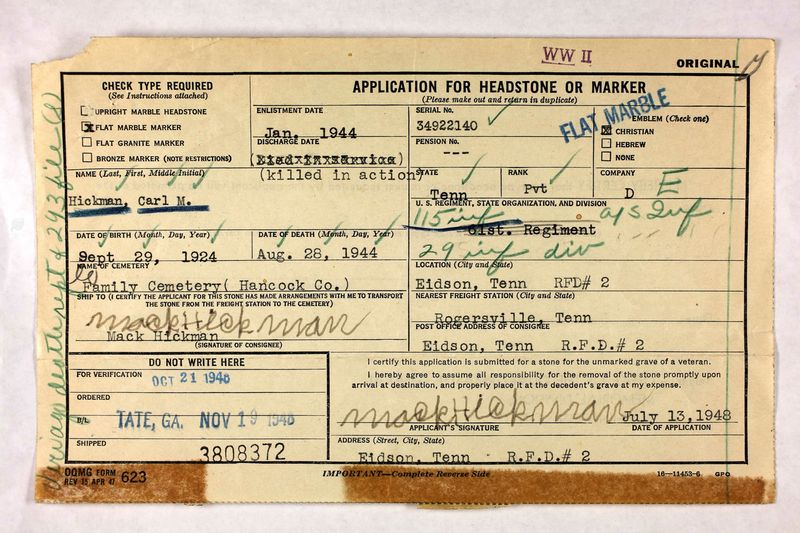 WW II
ORIGINAL
CHECK TYPE REQUIRED
(See Instructions attached)
UPRIGHT MARBLE HEADSTONE
X FLAT MARBLE MARKER
FLAT GRANITE MARKER
BRONZE MARKER (NOTE RESTRICTIONS)
APPLICATION FOR HEADSTONE OR MARKER
(Please make out and return in duplicate)
ENLISTMENT DATE
Jan, 1944
DISCHARGE DATE
(Died in service)
(killed in action)
SERIAL No.
34922140
PENSION No.
---
FLAT MARBLE
EMBLEM (Check one)
X CHRISTIAN
HEBREW
NONE
NAME (Last, First, Middle Initial)
Hickman, Carl M.
STATE
Tenn
RANK
Pvt
COMPANY
D E
U. S. REGIMENT, STATE ORGANIZATION, AND DIVISION
115 inf
01st. Regiment
29 inf div
DATE OF BIRTH (Month, Day, Year)
Sept 29, 1924
DATE OF DEATH (Month, Day, Year)
Aug. 28, 1944
NAME OF CEMETERY
Family Cemetery( Hancock Co.)
LOCATION (City and State)
Eidson, Tenn RFD# 2
SHIP TO (I CERTIFY THE APPLICANT FOR THIS STONE HAS MADE ARRANGEMENTS WITH ME TO TRANSPORT
THE STONE FROM THE FREIGHT STATION TO THE CEMETERY)
Mack Hickman
Mack Hickman
(SIGNATURE OF CONSIGNEE)
NEAREST FREIGHT STATION (City and State)
Rogersville, Tenn
POST OFFICE ADDRESS OF CONSIGNEE
Eidson, Tenn R.F.D.# 2
DO NOT WRITE HERE
FOR VERIFICATION
OCT 21 1948
ORDERED
B/L
TATE, GA. NOV 19 1948
SHIPPED
3808372
I certify this application is submitted for a stone for the unmarked grave of a veteran.
I hereby agree to assume all responsibility for the removal of the stone promptly upon
arrival at destination, and properly place it at the decedent's grave at my expense.
Mack Hickman
July 13, 1948
APPLICANT'S SIGNATURE
DATE OF APPLICATION
ADDRESS (Street, City, State)
Eidson, Tenn R.F.D.# 2
OQMG FORM
REV 15 APR 47 623
IMPORTANT—Complete Reverse Side
16—11453-6 GPO